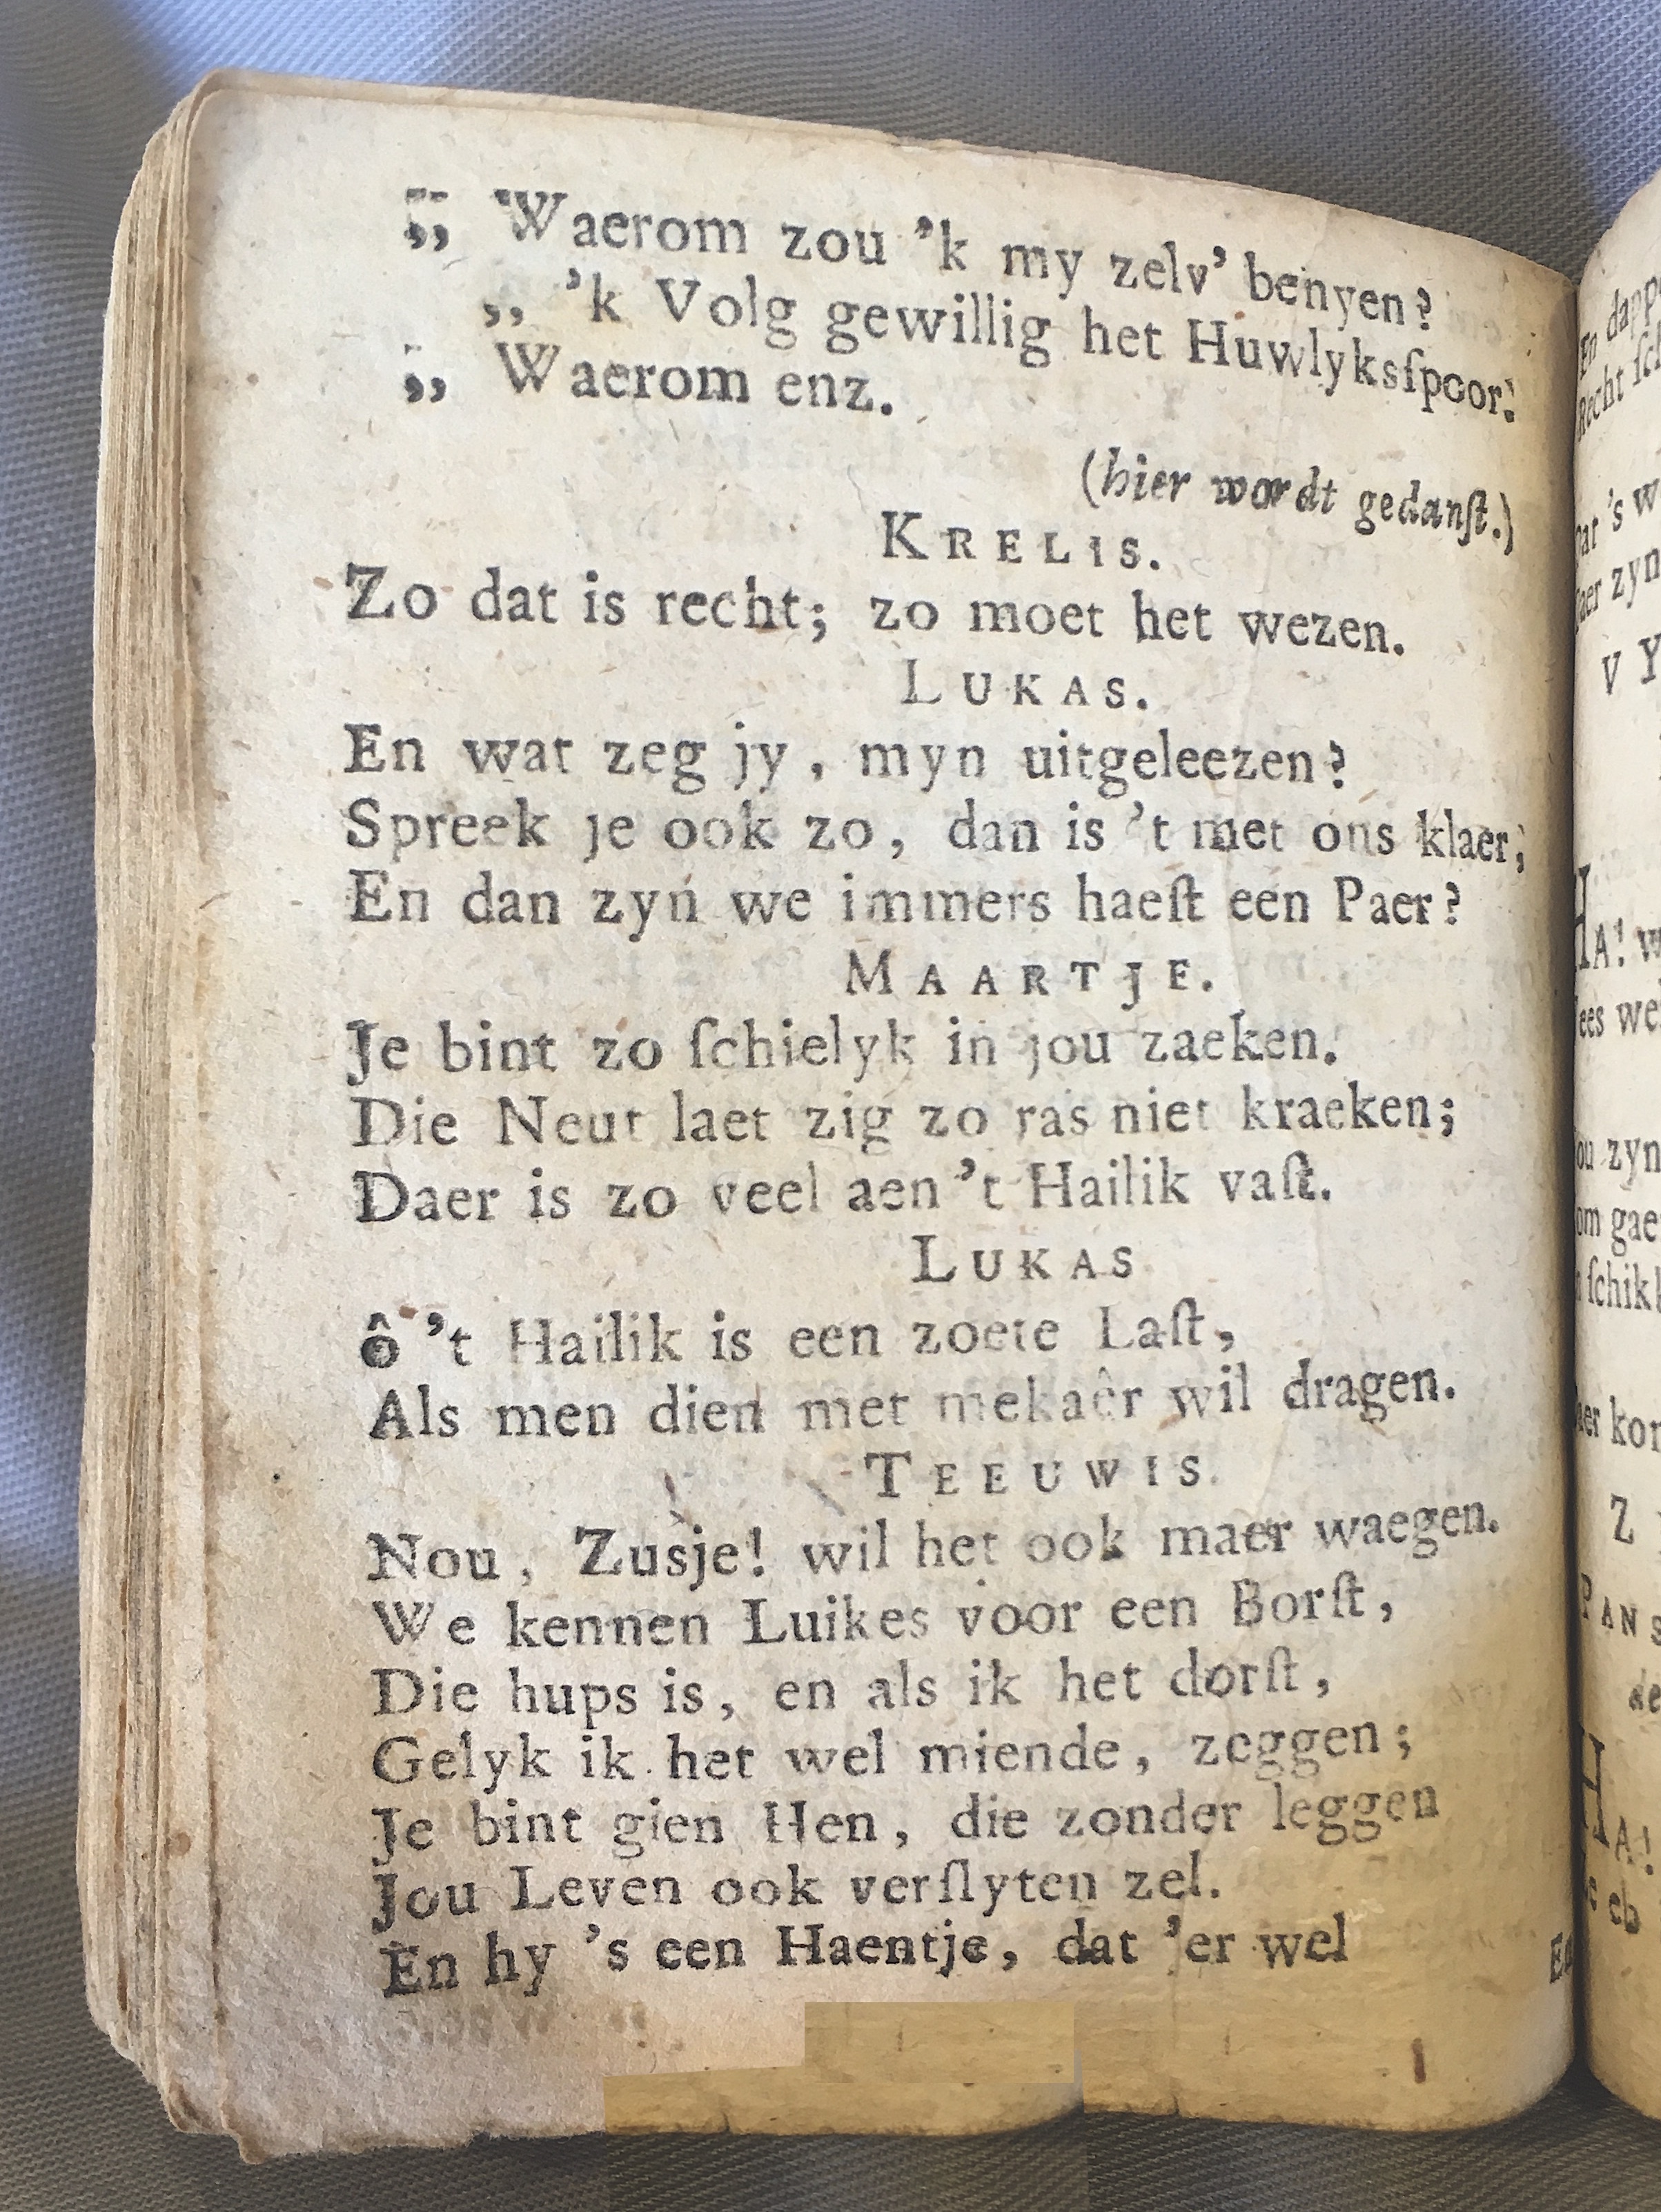 „ Waerom zou 'k my zelv' benyen?
„ 'k Volg gewillig het Huwlyksſpoor:
„ Waerom enz.
(hier wordt gedanſt.)
KRELIS.
Zo dat is recht; zo moet het wezen.
LUKAS.
En wat zeg jy, myn uitgeleezen?
Spreek je ook zo, dan is 't met ons klaer;
En dan zyn we immers haeſt een Paer?
MAARTJE.
Je bint zo ſchielyk in jou zaeken.
Die Neut laet zig zo ras niet kraeken;
Daer is zo veel aen 't Hailik vaſt.
LUKAS
ô 't Hailik is een zoete Laſt,
Als men dien met mekaêr wil dragen.
TEEUWIS.
Nou, Zusje! wil het ook maer waegen.
We kennen Luikes voor een Borſt,
Die hups is, en als ik het dorſt,
Gelyk ik het wel miende, zeggen;
Je bint gien Hen, die zonder leggen
Jou Leven ook verſlyten zel.
En hy 's een Haentje, dat 'er wel
En dapp
Recht ſch
's w
zyn
V Y
HA! w
wel
zyn
gae
ſchikk
kon
Z
PANS
de
HA!